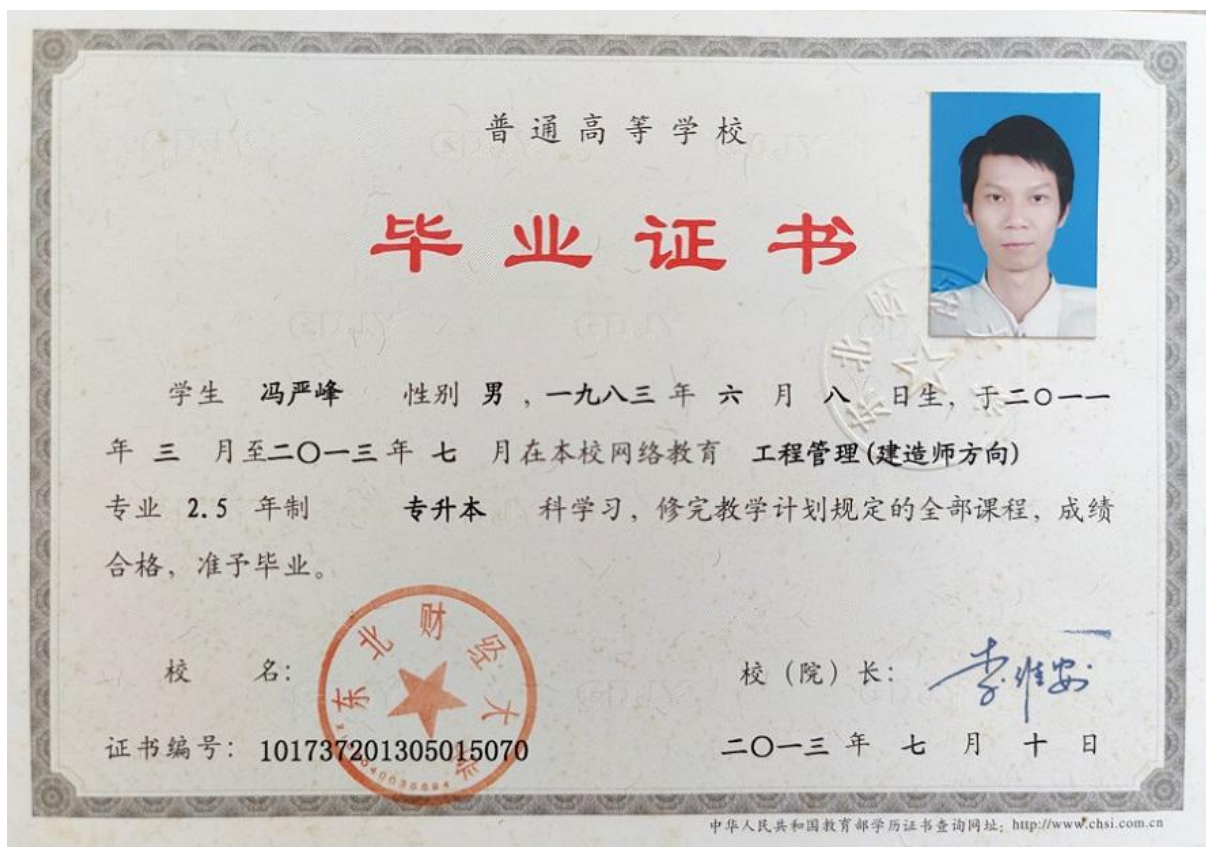 普通高等学校
毕业证书
学生 冯严峰 性别 男 ，一九八三 年 六 月 八 日生，于二〇一一
年 三 月至二〇一三 年 七 月在本校网络教育 工程管理(建造师方向)
专业 2.5 年制 专升本 科学习，修完教学计划规定的全部课程，成绩
合格，准予毕业。
校 名：
东北财经大学
校（院）长：
李维安
证书编号：101737201305015070
二〇一三 年 七 月 十 日
中华人民共和国教育部学历证书查询网址：http://www.chsi.com.cn